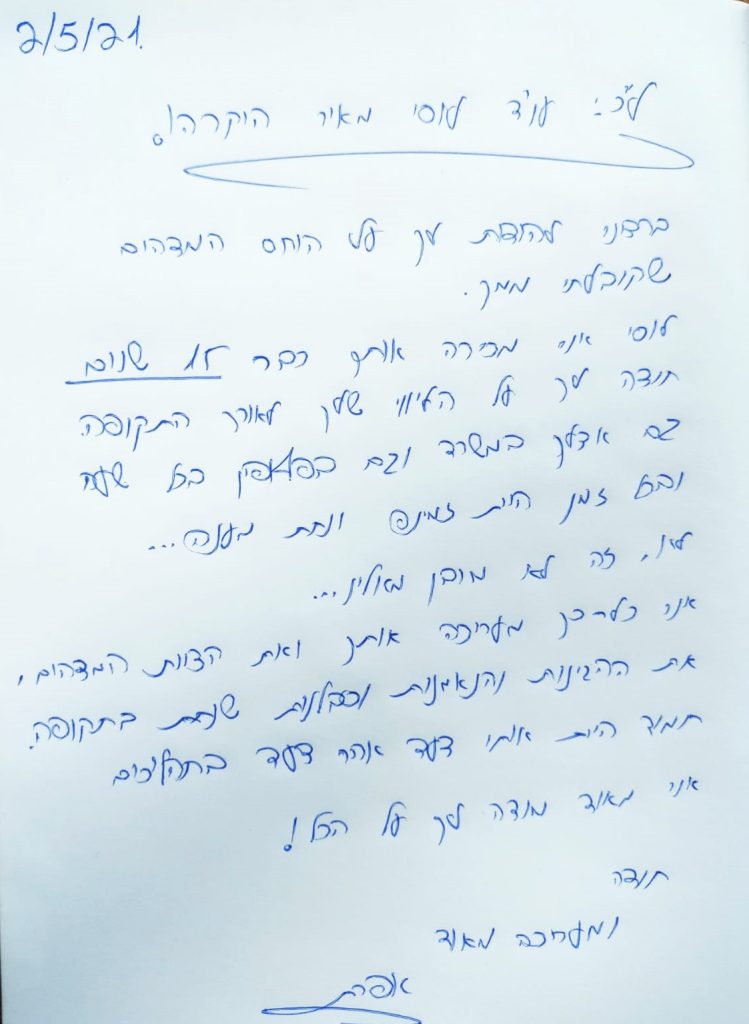 2/5/21.
לכ': עו"ד לוסי מאיר היקרה!
ברצוני להודות לך על היחס המדהים
שקיבלתי ממך.
לוסי אני מכירה אותך כבר 15 שנים
תודה לך על הליווי שלך לאורך התקופה.
גם אצלך במשרד וגם בכל שעה
ובכל זמן היית זמינה ונתת מענה...
לא, זה לא מובן מאליו...
אני כל כך מעריכה אותך ואת הצוות המדהים,
את ההגינות והנאמנות וסבלנות שנתת בתקופה.
תמיד היית איתי צעד אחר צעד בתהליכים
אני מאוד מודה לך על הכל!
תודה
ומעריכה מאוד
אפרת